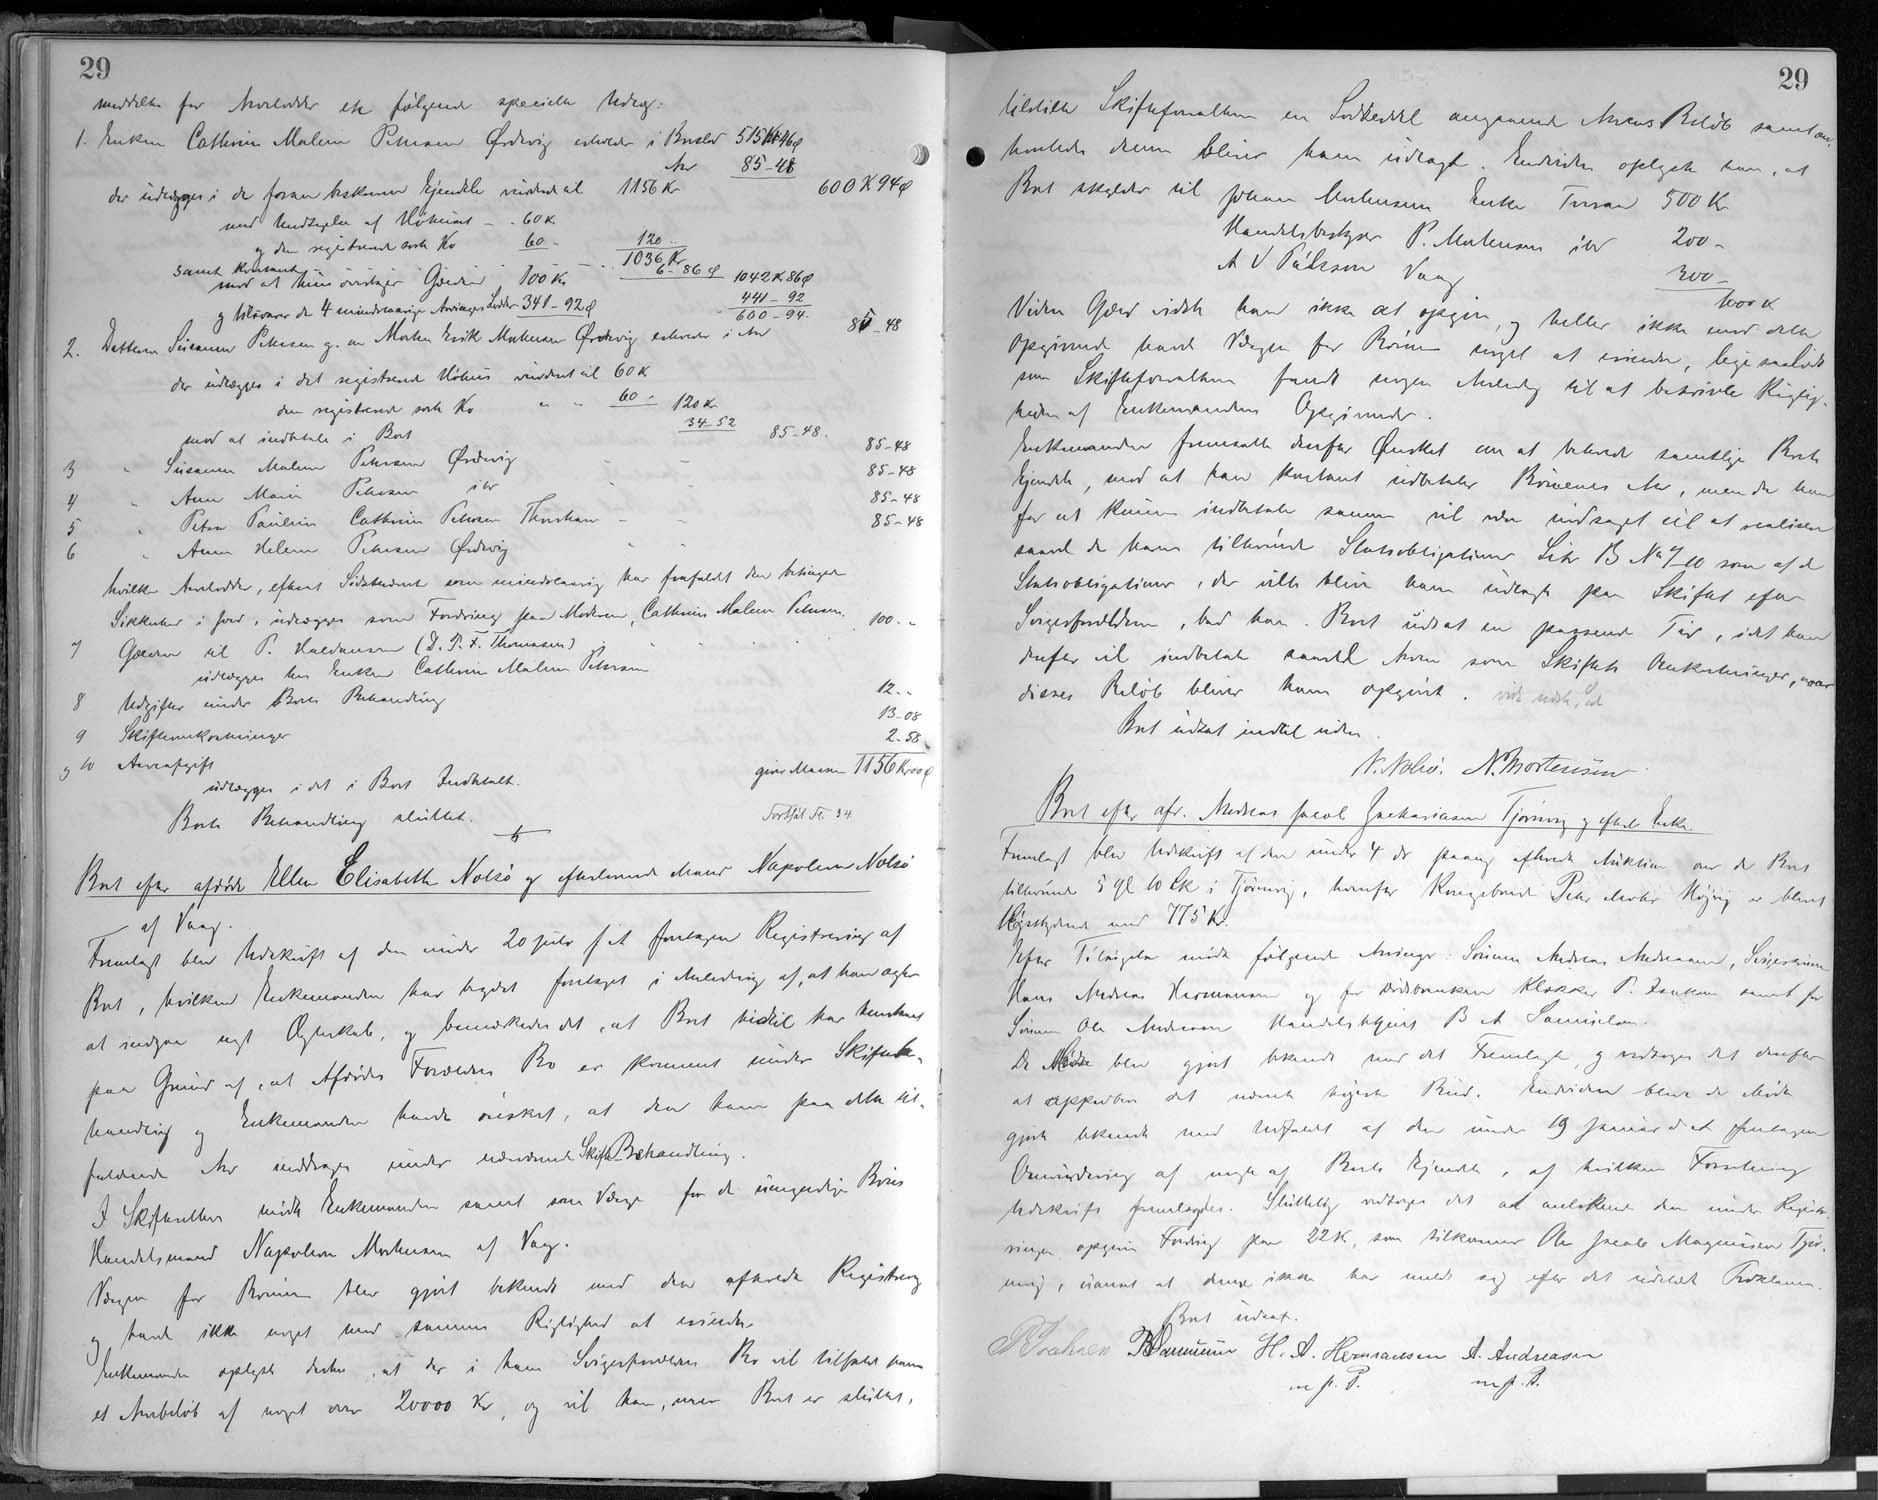 29
meddeltes for Arvelodder etc følgende specielle Udlæg:
1. Enken Cathrine Malene Petersen Ørdevig erholder i Boeslod 515 Kr 46 Ø
Arv 85-48
der udlægges i de foran beskrevne Ejendele vurderet til 1156 Kr 600 K 94 Ø
med Undtagelse af Höhuset - 60 K
og den registrerede sorte Ko 60 - 120 -
1036 Kr
samt kontant 6-86 Ø 1042 K 86 Ø
mod at hun overtager Gælden 100 Kr
og tilsvarer de 4 mindreaarige Arvingers Lodder 341-92 Ø 441-92
600-94.
2. Datteren Susanne Petersen g. m. Morten Erik Mortensen Ørdevig erholder i Arv 85-48
der udlægges i det registrerede Höhus vurderet til 60 K
den registrerede sorte Ko " " 60 - 120 Kr
mod at indbetale i Boet 34-52 85-48.
3 " Susanne Malene Petersen Ørdevig - - 85-48
4 " Anne Marie Petersen ibr - - 85-48
5 " Petra Pauline Cathrine Petersen Thorshavn - - 85-48
6 " Anne Helene Petersen Ørdevig " " 85-48
hvilke Arvelodder, efterat Sidstnævnte som mindreaarig har frafaldet den betingede
Sikkerhed i Jord, udlægges som Fordring paa Moderen, Cathrine Malene Petersen.
7 Gælden til P. Haldansen (D. P. F. Thomsen) 100 - "
udlægges hos Enken Cathrine Malene Petersen
8 Udgifter under Boets Behandling 12 - "
9 Skifteomkostninger 13-08
og 10 Arveafgift 2-58
udlægges i det i Boet Indbetalt. giver Massen 1156 Kr 00 Ø
Boets Behandling sluttet. Fortsat Fl. 34
Boet efter afdøde Ellen Elisabeth Nolsö og efterlevende Mand Napoleon Nolsö
af Vaag.
Fremlagt blev Udskrift af den under 20 Juli f. A. foretagne Registrering af
Boet, hvilken Enkemanden har begæret foretaget i Anledning af, at han agter
at indgaa nyt Ægteskab, og bemærkedes det, at Boet hidtil har henstaaet
paa Grund af, at Afdødes Forældres Bo er kommet under Skiftebe-
handling og Enkemanden havde ønsket, at den ham paa dette til-
faldende Arv inddrages under nærværende Skifte Behandling.
I Skifteretten mødte Enkemanden samt som Værge for de umyndige Börn
Handelsmand Napoleon Mortensen af Vaag.
Værgen for Börnene blev gjort bekendt med den afholdte Registrering
og havde ikke noget mod sammes Rigtighed at erindre.
Enkemanden oplyste derhos, at der i hans Svigerforældres Bo vil tilfalde ham
et Arvebeløb af noget over 20000 Kr, og vil han, naar Boet er sluttet,
29
tilstille Skifteforvalteren en Lodseddel angaaende Arvens Beløb samt om,
hvorledes denne bliver ham udlagt. Endvidere oplyste han, at
Boet skylder til Johan Mortensens Enke Tveraa 500 Kr
Handelsbestyrer P. Mortensen ibr 200 -
A V Pálsson Vaag 300 -
1000 K
Videre Gæld vidste han ikke at opgive, og heller ikke mod dette
Opgivende havde Værgen for Börnene noget at erindre, lige saalidt
som Skifteforvalteren fandt nogen Anledning til at betvivle Rigtig-
heden af Enkemandens Opgivende.
Enkemanden fremsatte derfor Ønsket om at beholde samtlige Boets
Ejendele, mod at han kontant udbetaler Börnenes Arv, men da han
for at kunne indbetale samme vil være nødsaget til at realisere
saavel de ham tilhørende Statsobligationer Litr. B No 9-10 som af de
Statsobligationer, der ville blive ham udlagt paa Skiftet efter
Svigerforældrene, bad han Boet udsat en passende Tid, idet han
derefter vil indbetale saavel Arven som Skiftets Omkostninger, naar
disses Beløb bliver ham opgivet.
Boet udsat indtil videre.
N. Nolsö. N. Mortensen
Boet efter afd. Andreas Jacob Zachariasen Tjörnevig og efterl. Enke
Fremlagt blev Udskrift af den under 4 ds paany afholdte Auktion over de Boet
tilhørende 5 Gl 10 Sk i Tjörnevig, hvorfor Kongebonde Peter Högvig er blevet
Højestbydende med 775 Kr.
Efter Tilsigelse mødte følgende Arvinger: Sönnen Andreas Andreasen, Svigersønnen
Hans Andreas Hermansen og for Klokker P. Isaksen samt for
Sönnen Ole Andreasen Handelsbetjent B A Samuelsen.
De Mødte blev gjort bekendt med det Fremlagte, og vedtoges det derefter
at approbere det nævnte højeste Bud. Endvidere bleve de Mødte
gjorte bekendt med Udfaldet af den under 19 Januar d. A. foretagne
Omvurdering af nogle af Boets Ejendele, af hvilken Forretning
Udskrift fremlagdes. Sluttelig vedtoges det at anerkende den under Registre-
ringen opgivne Fordring paa 22 K, som tilkommer Ole Jacob Magnussen Tjör-
nevig, uanset at denne ikke har meldt sig efter det udstedte Proklama.
Boet udsat.
P Isaksen B Samuelsen H. A. Hermansen A. Andreasen
m. f. P. m. f. P.